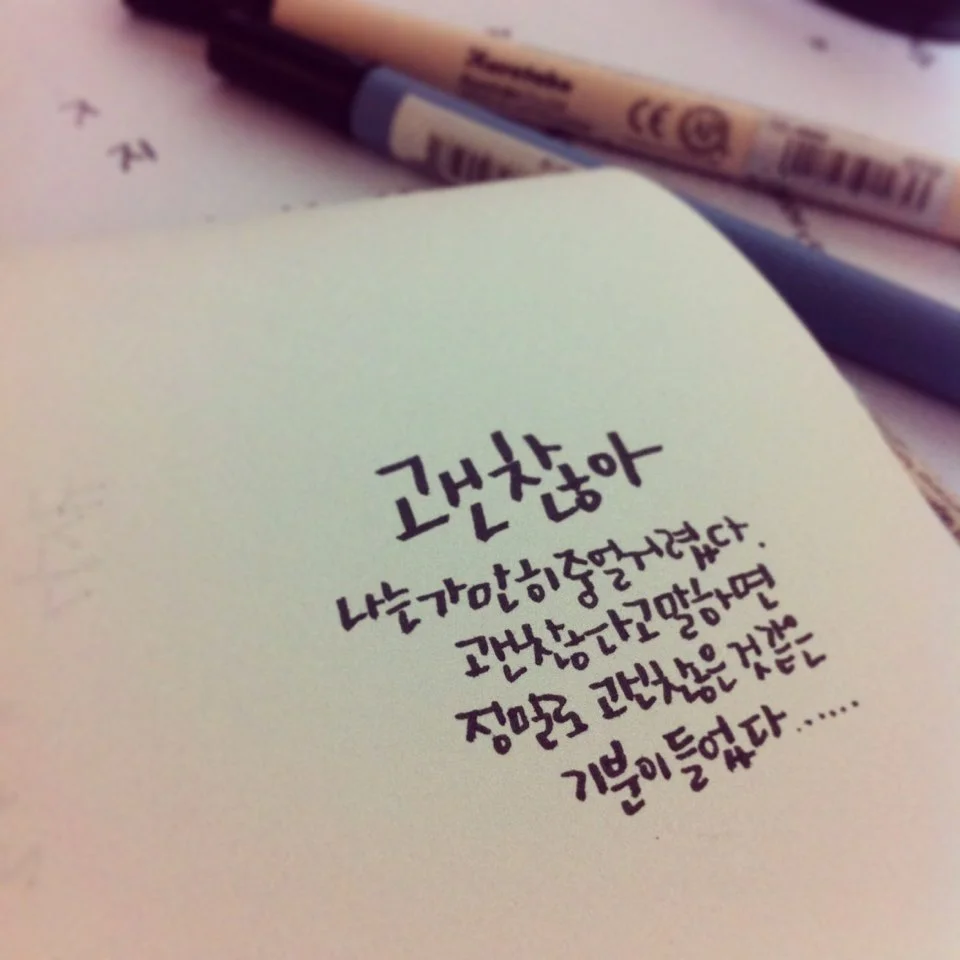 Kuretake
CE
지
괜찮아
나는 가만히 중얼거렸다.
괜찮다고 말하면
정말로 괜찮은 것 같은
기분이 들었다......